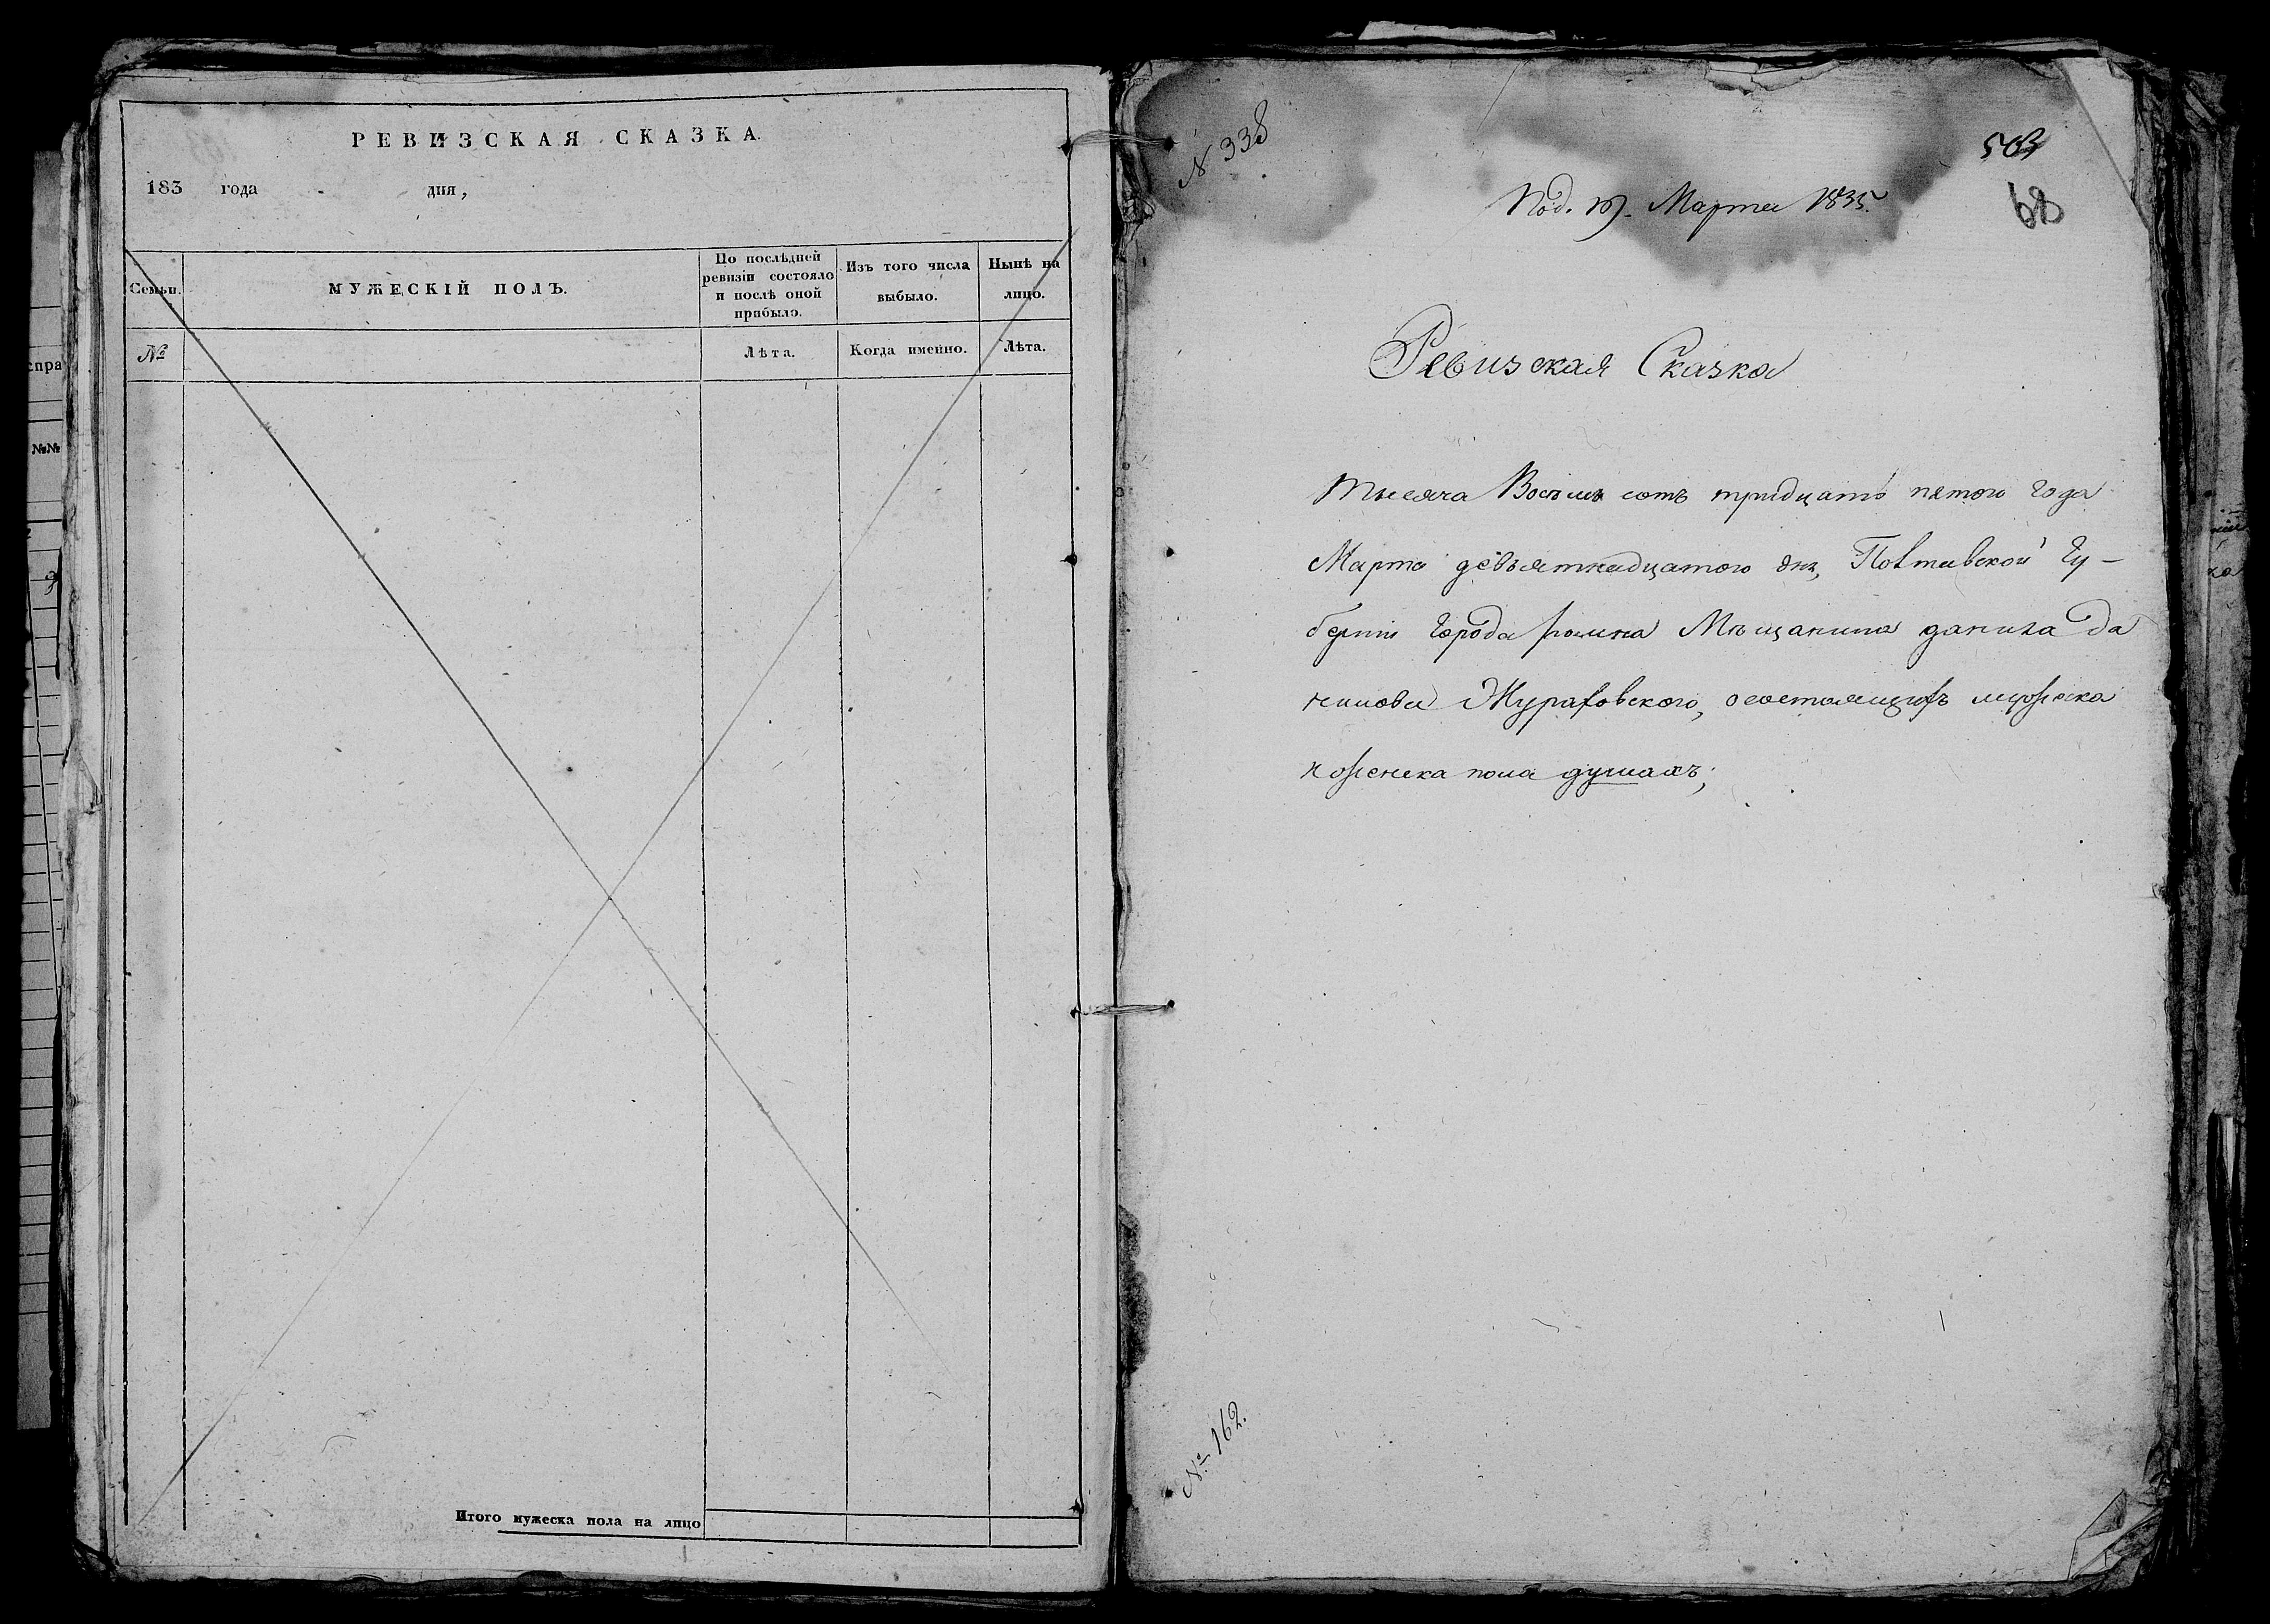 РЕВИЗСКАЯ СКАЗКА.
183 года дня,
Семьи.
МУЖЕСКІЙ ПОЛЪ.
По послѣдней
ревизіи состояло
и послѣ оной
прибыло.
Изъ того числа
выбыло.
Нынѣ на
лицо.
№
Лѣта.
Когда именно.
Лѣта.
Итого мужеска пола на лицо
спра
№№
N 338
503
68
Под. 19. Марта 1835.
Ревизская Сказка
Тысяча Восемь сотъ тридцать пятого года
Марта девьятнадцатого дня, Полтавской Гу-
берніи Города Ромна Мѣщанина данила Да
нилова Журавовского, о состоящихъ мужеска
и женска пола душахъ;
№ 162.